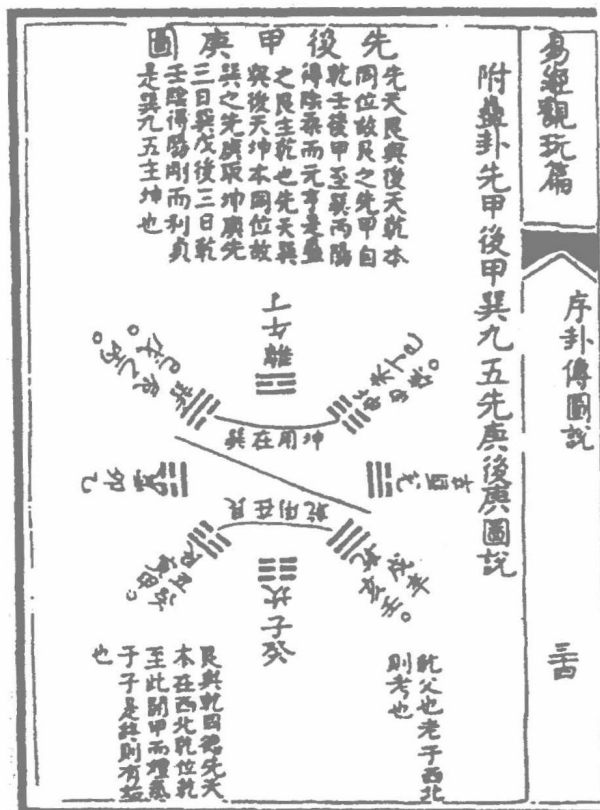 易經觀玩篇
序卦傳圖說
附蠱卦先甲後甲巽九五先庚後庚圖說
先後甲庚圖
先天艮與後天乾本
同位故艮之先甲自
乾壬後甲至巽丙陽
得陰柔而元亨是蠱
之艮主乾也先天巽
與後天坤本同位故
巽之先庚取坤庚先
三日巽戊後三日乾
壬陰得陽剛而利貞
是巽九五主坤也
離午丁
坤用在巽
震
卯乙
乾用在艮
坎子癸
乾父也老于西北
則考也
艮與乾同德先天
本在西北乾位乾
至此開甲而
于子是終則有始
也